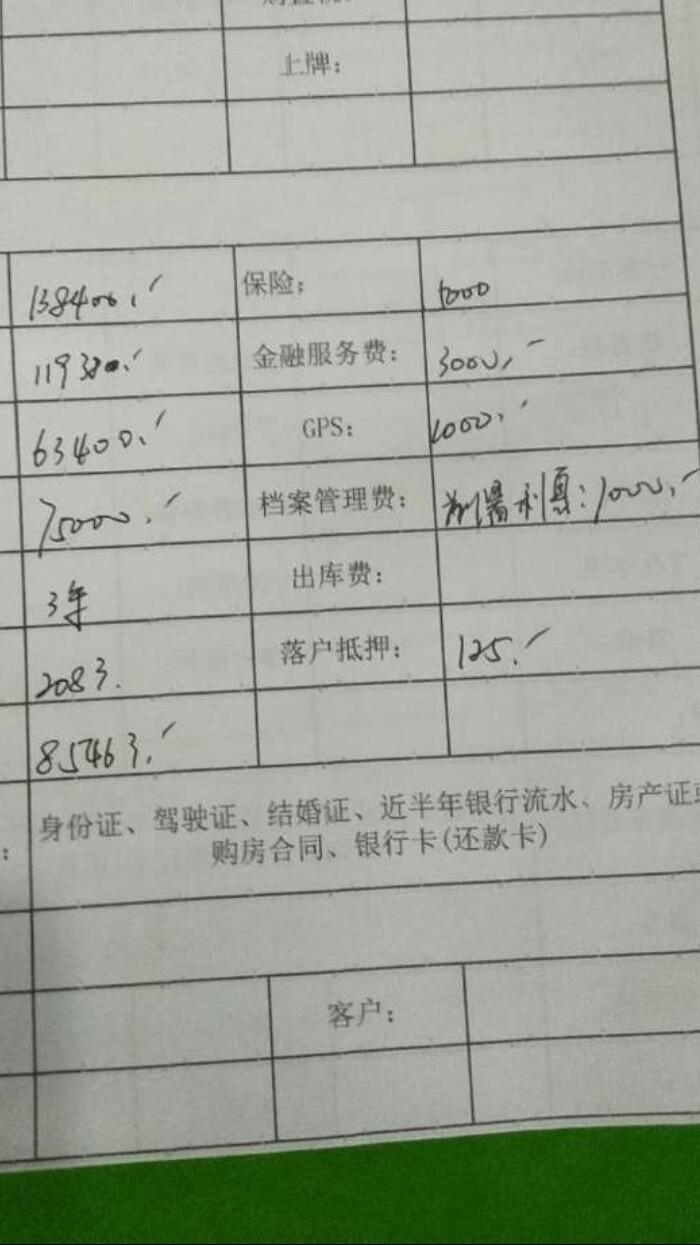 上牌：
138400.
保险：
5000
119380.
金融服务费：
3000.
63400.
GPS：
1000.
75000.
档案管理费：
利息：1000.
3年
出库费：
2083.
落户抵押：
125.
85463.
：
身份证、驾驶证、结婚证、近半年银行流水、房产证或
购房合同、银行卡(还款卡)
客户：